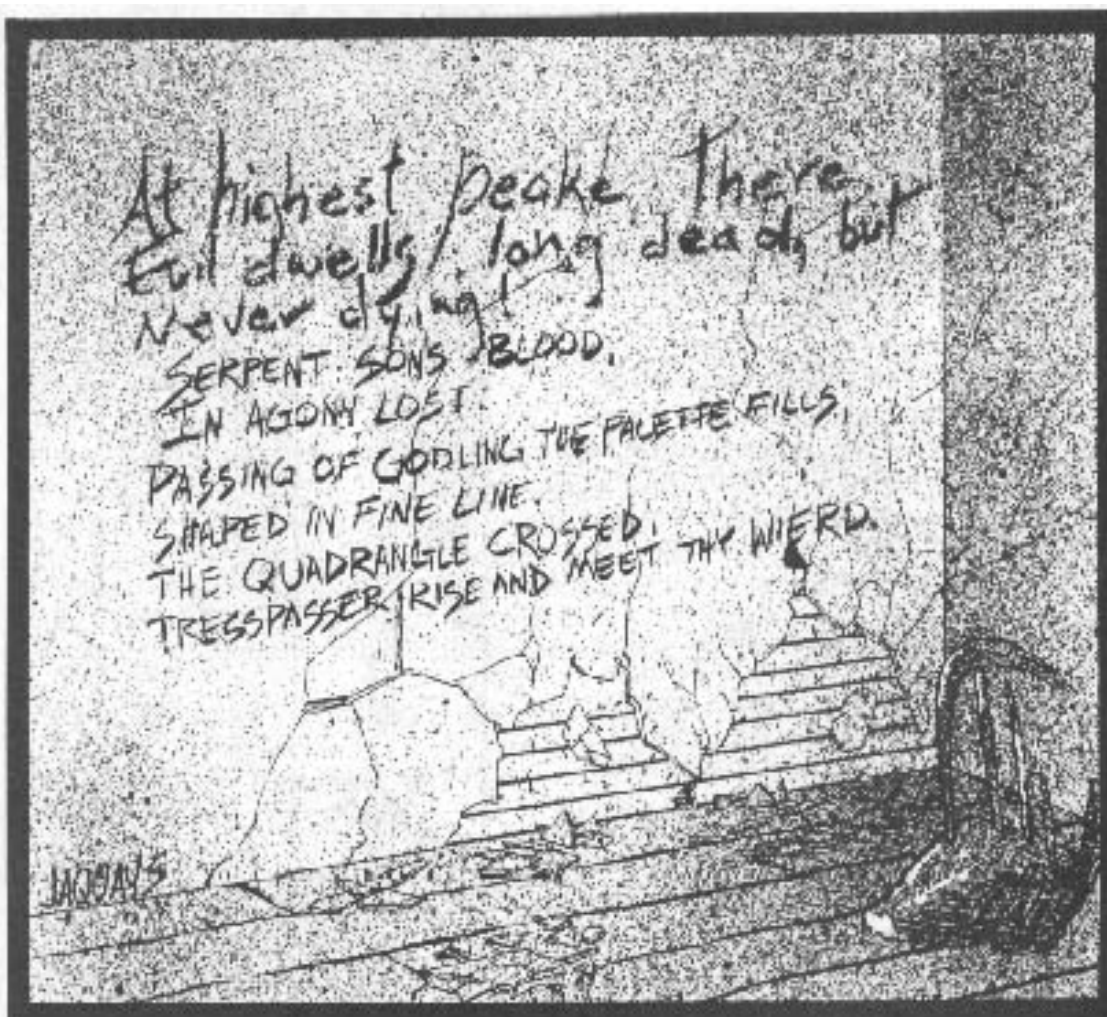 At highest peake There
Evil dwells, long dead, but
Never dying!
SERPENT SONS BLOOD,
IN AGONY LOST.
PASSING OF GODLING THE PALETTE FILLS,
SHAPED IN FINE LINE.
THE QUADRANGLE CROSSED,
TRESSPASSER RISE AND MEET THY WIERD.
JAQUAYS